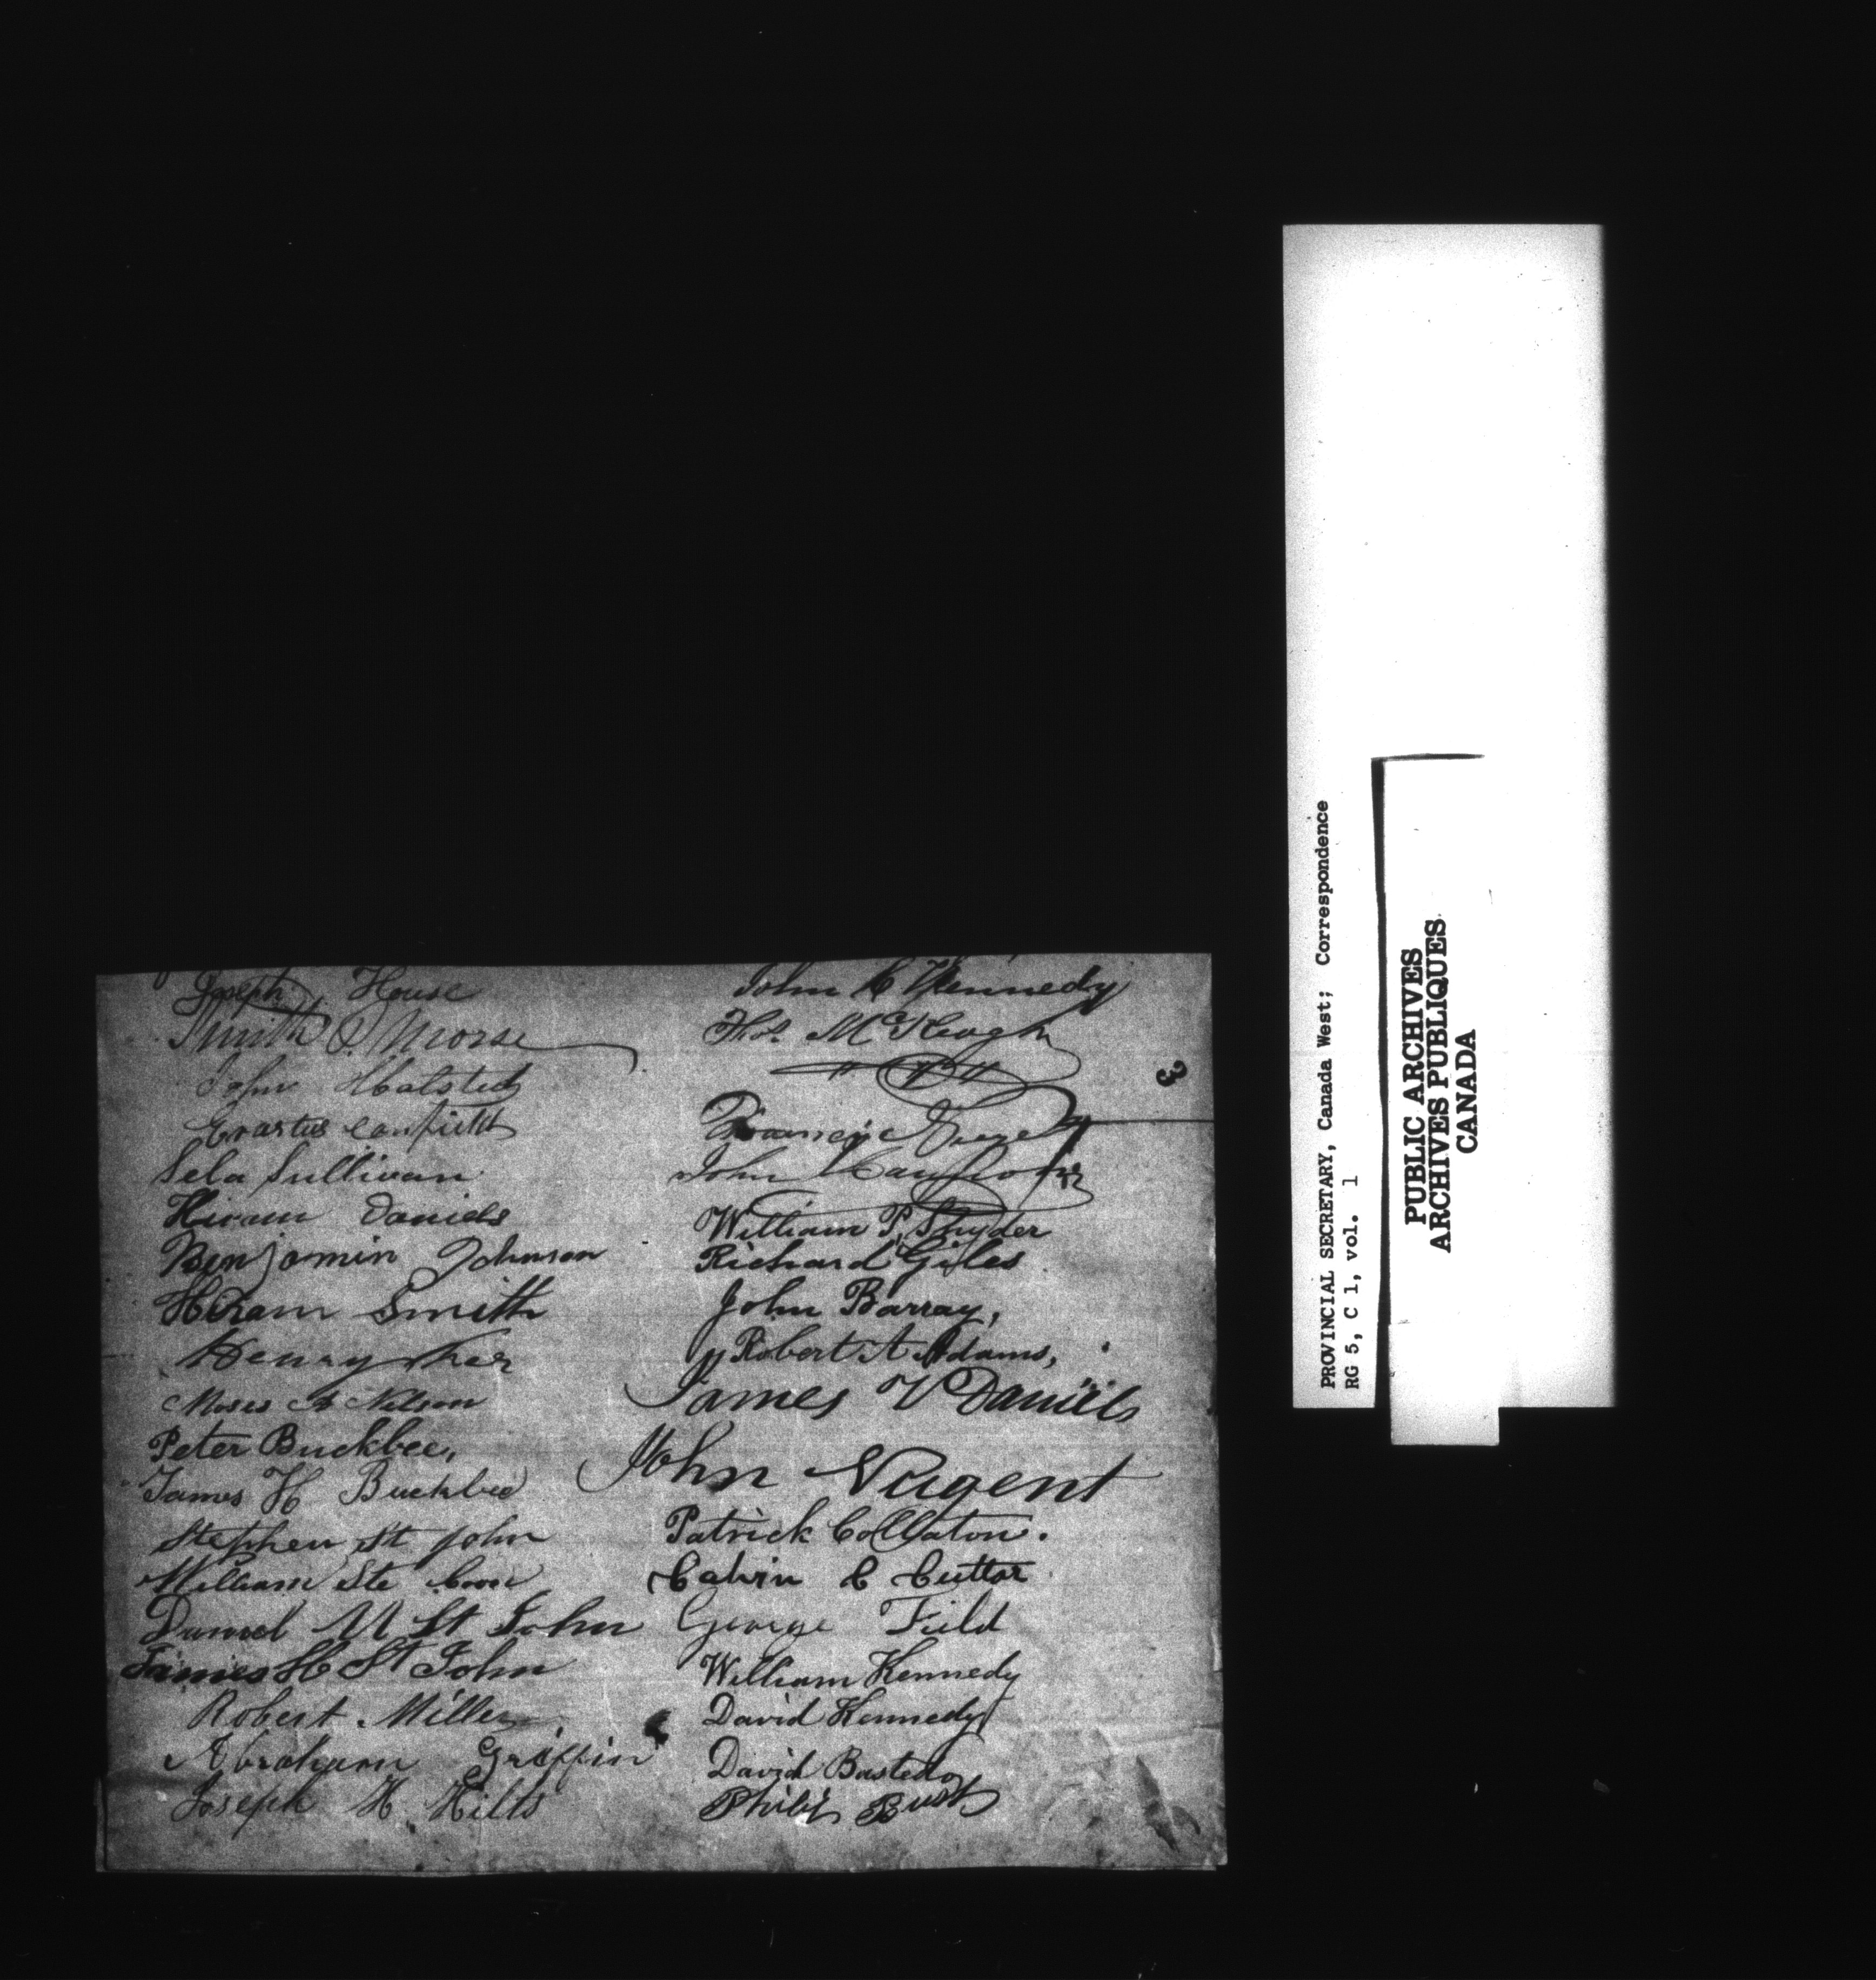 Joseph House
Smith S. Morse
John Halsted
Erastus Canfield
Sela Sullivan
Hiram Daniels
Benjamin Johnson
Hiram Smith
Henry Ker
Moses A Nelson
Peter Buckbee,
James H Buckbee
Stephen St John
William Ste
Daniel M St John
James H St John
Robert Miller
Abraham Griffin
Joseph H. Hills
John C Kennedy
Thos. McKeogh
3
Francis
John
William P. Snyder
Richard Giles
John Barray,
Robert A Adams,
James V Daniels
John Nugent
Patrick Collaton.
Calvin C Cutter
George Field
William Kennedy
David Kennedy
David Bastedo
Philip Bust
PROVINCIAL SECRETARY, Canada West; Correspondence
RG 5, C 1, vol. 1
PUBLIC ARCHIVES
ARCHIVES PUBLIQUES
CANADA